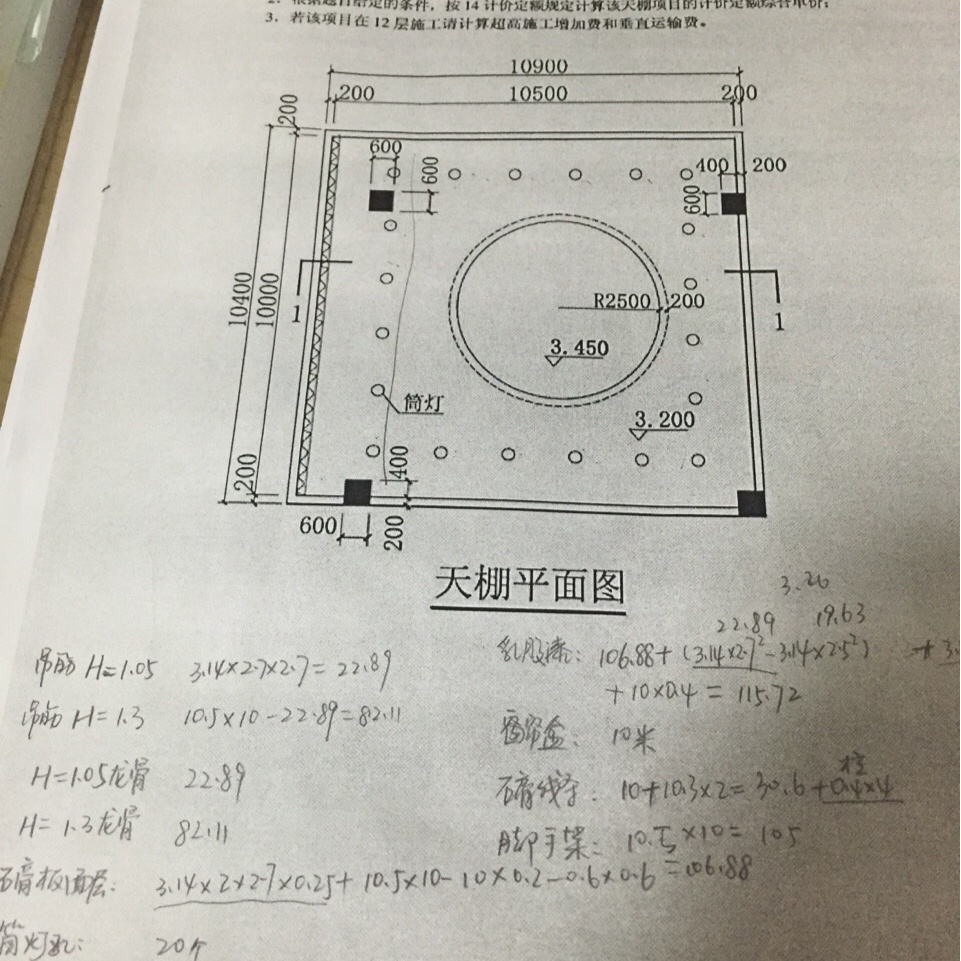 2. 根据题目给定的条件，按 14 计价定额规定计算该天棚项目的计价定额综合单价；
3. 若该项目在 12 层施工请计算超高施工增加费和垂直运输费。
10900
200 10500 200
200
600
600
400 200
600
10400
10000
1
R2500 200
1
3.450
筒灯
3.200
400
200
600
200
天棚平面图
3.26
22.89 19.63
吊筋 H=1.05 3.14×2.7×2.7=22.89
乳胶漆: 106.88+(3.14×2.7²-3.14×2.5²) +3.
+10×0.4=115.72
吊筋 H=1.3 10.5×10-22.89=82.11
窗帘盒: 10米
H=1.05龙骨 22.89
柱
石膏线条: 10+10.3×2=30.6+0.4×4
H=1.3龙骨 82.11
脚手架: 10.5×10=105
石膏板面层: 3.14×2×2.7×0.25+10.5×10-10×0.2-0.6×0.6=106.88
筒灯孔: 20个